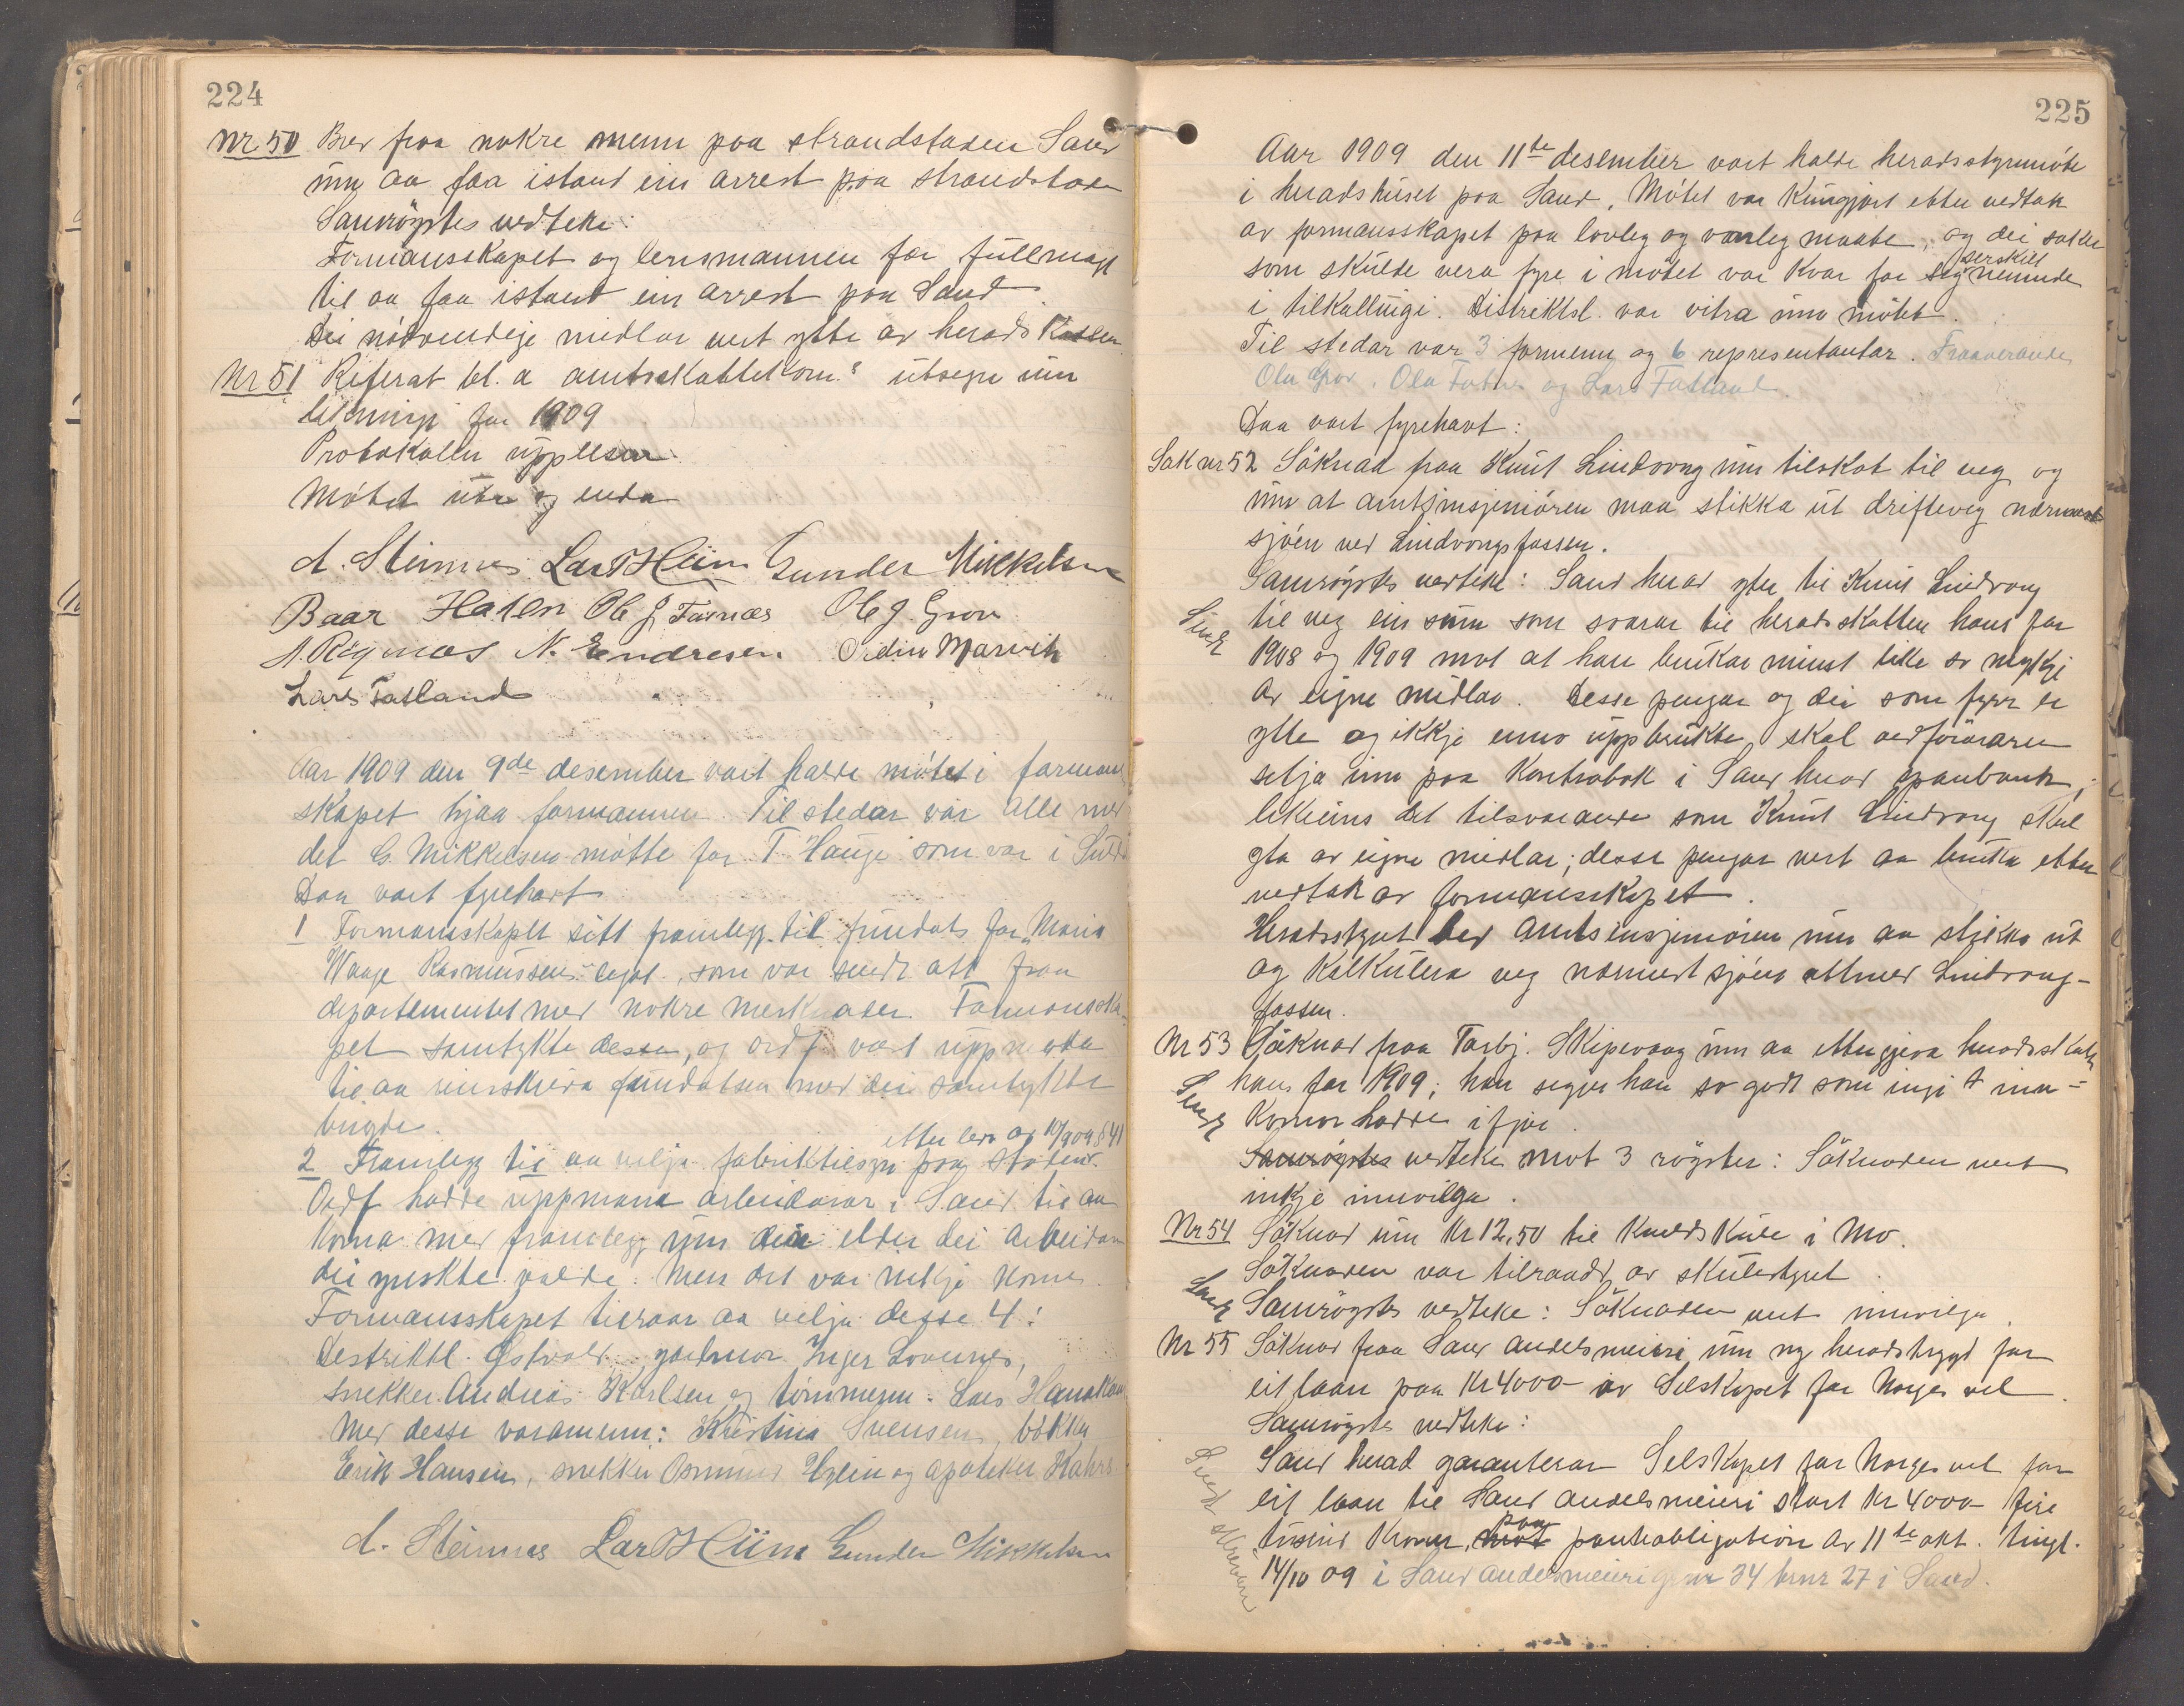 224
Nr 50 Brev fraa nokre menn paa strandstaden Sand
um aa faa istand ein arrest paa strandstaden
Samrøystes vedteke:
Formansskapet og lensmannen fær fullmagt
til aa faa istand ein arrest paa Sand.
Dei nødvendige midlar vert ytte av heradskassen
Nr 51 Referat bl. a amtsskattekom.s utsegn um
likningi for 1909
Protokollen upplesen
Møtet ute og enda
A. Steinnes Lars Hiim Gunder Mikkelsen
Baar Halen Ole J. Fosnæs Ole J. Grov
A. Røgnas N. Endresen Ordin Marvik
Lars Tatland
Aar 1909 den 9de desember vart halde møtet i formann
skapet hjaa formannen. Til stedar var alle med
det G. Mikkelsen møtte for T. Hauge som var i Suldal
Daa vart fyrehavt
1 Formannskapet sitt framlegg til fundats for "Maria
Waage Rasmussens legat", som var sendt att fraa
departementet med nokre merknader. Formanska-
pet samtykte desse, og ordf vart uppmoda
til aa reinskriva fundatsen med dei samtykte
brigde.
etter lov av 10/9 09 § 41
2 Framlegg til aa velja fabriktilsyn paa staden.
Ordf hadde uppmana arbeidarar i Sand til aa
koma med framlegg um dei eller dei arbeidar
dei ynskte valde. Men det var inkje kome.
Formansskapet tilraar aa velja desse 4:
Distriktl. Østvold, jordmor Inger Lovenes,
snekker Andreas Karlsen og tømmerm. Lars Hanakam
Med desse varamenn: Kristina Svensen, bøkker
Erik Hansen, snekker Osmund Hylen og apoteker Hahrs
A. Steinnes Lars Hiim Gunder Mikkelsen
225
Aar 1909 den 11te desember vart halde heradsstyremøte
i heradshuset paa Sand. Møtet var kunngjort etter vedtak
av formansskapet paa lovleg og vanleg maate, og dei saker
serskilt
som skulde vera fyre i møtet var kvar for seg nemnde
i tilkallingi. Distriktsl. var vitra um møtet.
Til stedar var 3 formenn og 6 representantar. Fraaverande
Ola Grov, Ola Fosnes og Lars Tatland
Daa vart fyrehavt:
Sak nr 52 Søknad fraa Knut Lindvong um tilskot til veg og
um at amtsinsjeniøren maa stikka ut drifteveg nærmast
sjøen ved Lindvongsfossen.
Samrøystes vedteke: Sand herad yter til Knut Lindvong
til veg ein sum som svarar til heradsskatten hans for
Sendt
1908 og 1909 mot at han brukar minst like so mykje
av eigne midlar. Desse pengar og dei som fyrr er
ytte og ikkje enno uppbrukte, skal vedförararen
setja inn paa kontrabok i Sand herad sparebank;
likeeins det tilsvarande som Knut Lindvong skal
yta av eigne midlar; desse pengar vert aa bruka etter
vedtak av formansskapet.
Heradsstyret bed amtsinsjeniøren um aa stikka ut
og kalkulera veg nærmest sjøen attmed Lindvong-
fossen.
Nr 53 Søknad fraa Torbj. Skipevaag um aa ettergjeva heradsskatten
hans for 1909; han segjer han so godt som ingi t inn-
Sendt
komor hadde i fjor.
Samrøystes vedteke mot 3 røyster: Søknaden vert
inkje innvilga.
Nr 54 Søknad um Kr 12,50 til kveldskule i Mo.
Søknaden var tilraadd av skulestyret.
Sendt
Samrøystes vedteke: Søknaden vert innvilga.
Nr 55 Søknad fraa Sand andelsmeieri um ny heradstrygd for
eit laan paa Kr 4000 av Selskapet for Norges vel.
Samrøystes vedteke:
Sand herad garanterar Selskapet for Norges vel for
eit laan til Sand andelsmeieri stort Kr 4000 fire
paa
tusind kroner, mot pantobligation av 11te okt. tingl.
14/10 09 i Sand andelsmeieri gnr 34 brnr 27 i Sand.
Sendt skrivaren